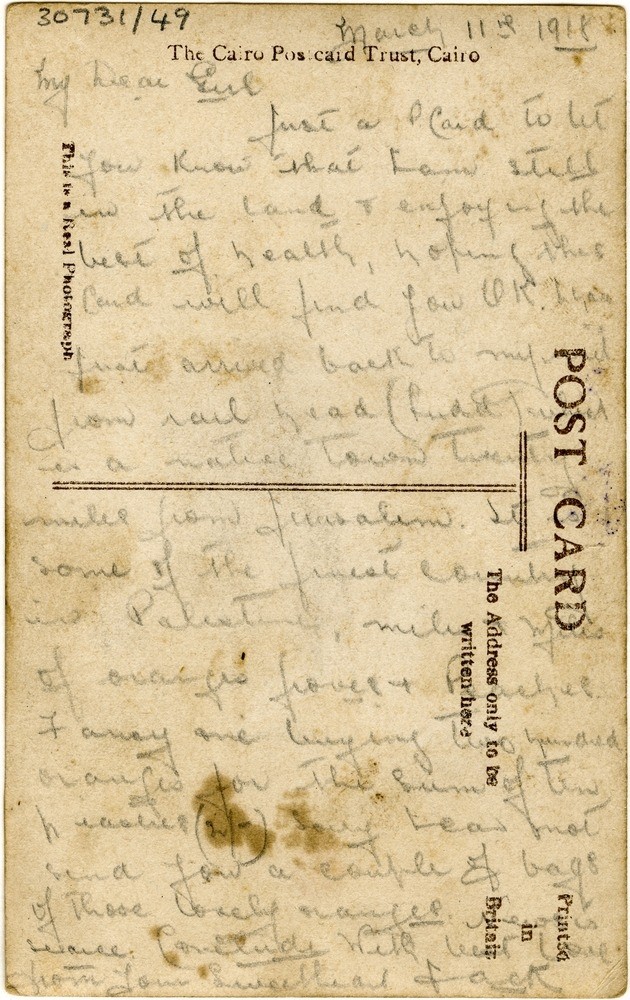 30731/49
March 11th 1918
The Cairo Postcard Trust, Cairo
My Dear Girl
Just a PCard to let
you know that I am still
in the land & enjoying the
best of health, hoping this
Card will find you OK. I
just arrived back to my
from rail head (Ludd)
is a native town twenty
miles from Jerusalem. It
some of the finest country
in Palestine, miles & miles
of oranges groves & Peaches.
Fancy me buying two hundred
oranges for the sum of ten
piastres (2/-) sorry I can not
send you a couple of bags
of those lovely oranges.
Conclude With best love
from your Sweetheart Jack
This is a Real Photograph
POST CARD
The Address only to be
written here
Printed
in
Britain